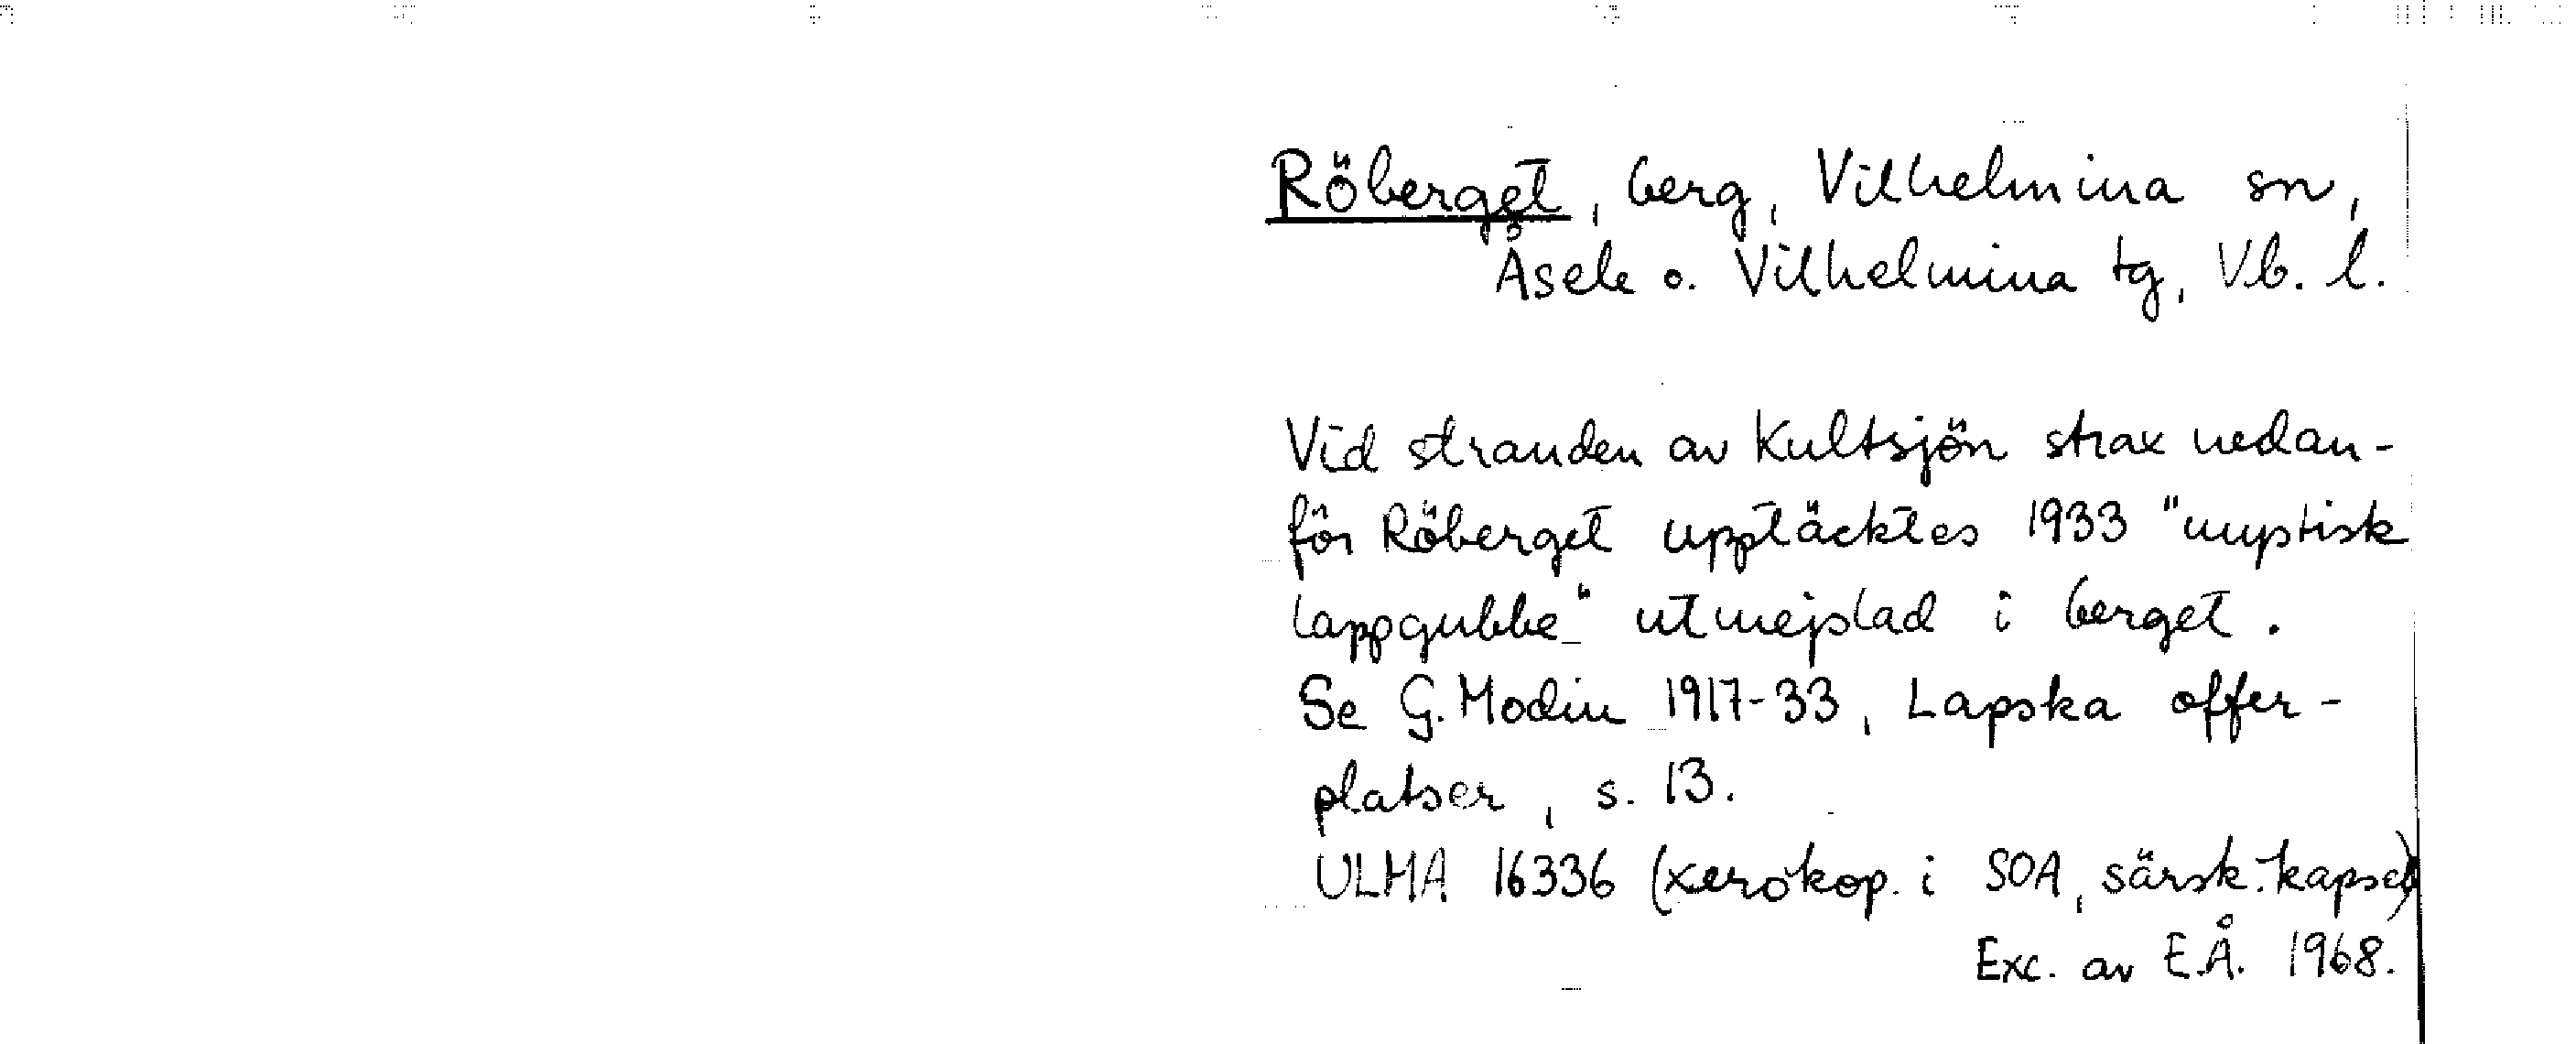 Röberget, berg, Vilhelmina sn,
Åsele o. Vilhelmina tg, Vb. l.
Vid stranden av Kultsjön strax nedan-
för Röberget upptäcktes 1933 "mystisk
lappgubbe" utmejslad i berget.
Se G. Modin 1917-33, Lapska offer-
platser, s. 13.
ULMA 16336 (xerokop. i SOA, särsk. kapsel)
Exc. av E.Å. 1968.